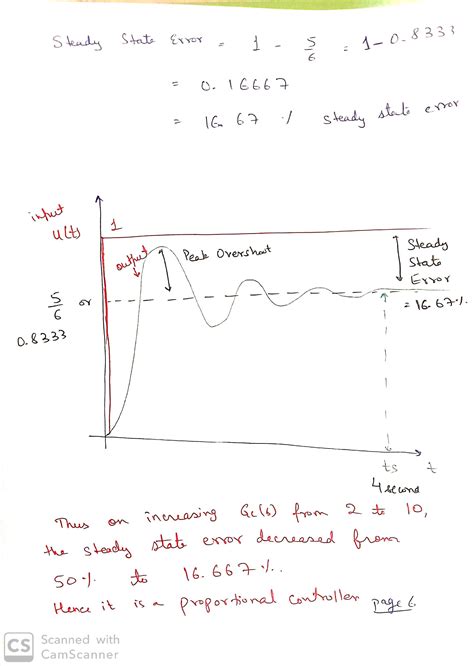 Steady State Error = 1 - 5/6 = 1-0.8333
= 0.16667
= 16.67 % steady state error
input
u(t)
1
output
Peak Overshoot
Steady
State
Error
= 16.67%
5/6 or
0.8333
ts
t
4 second
Thus on increasing Gc(s) from 2 to 10,
the steady state error decreased from
50% to 16.667%.
Hence it is a proportional controller page 6
CS Scanned with
CamScanner